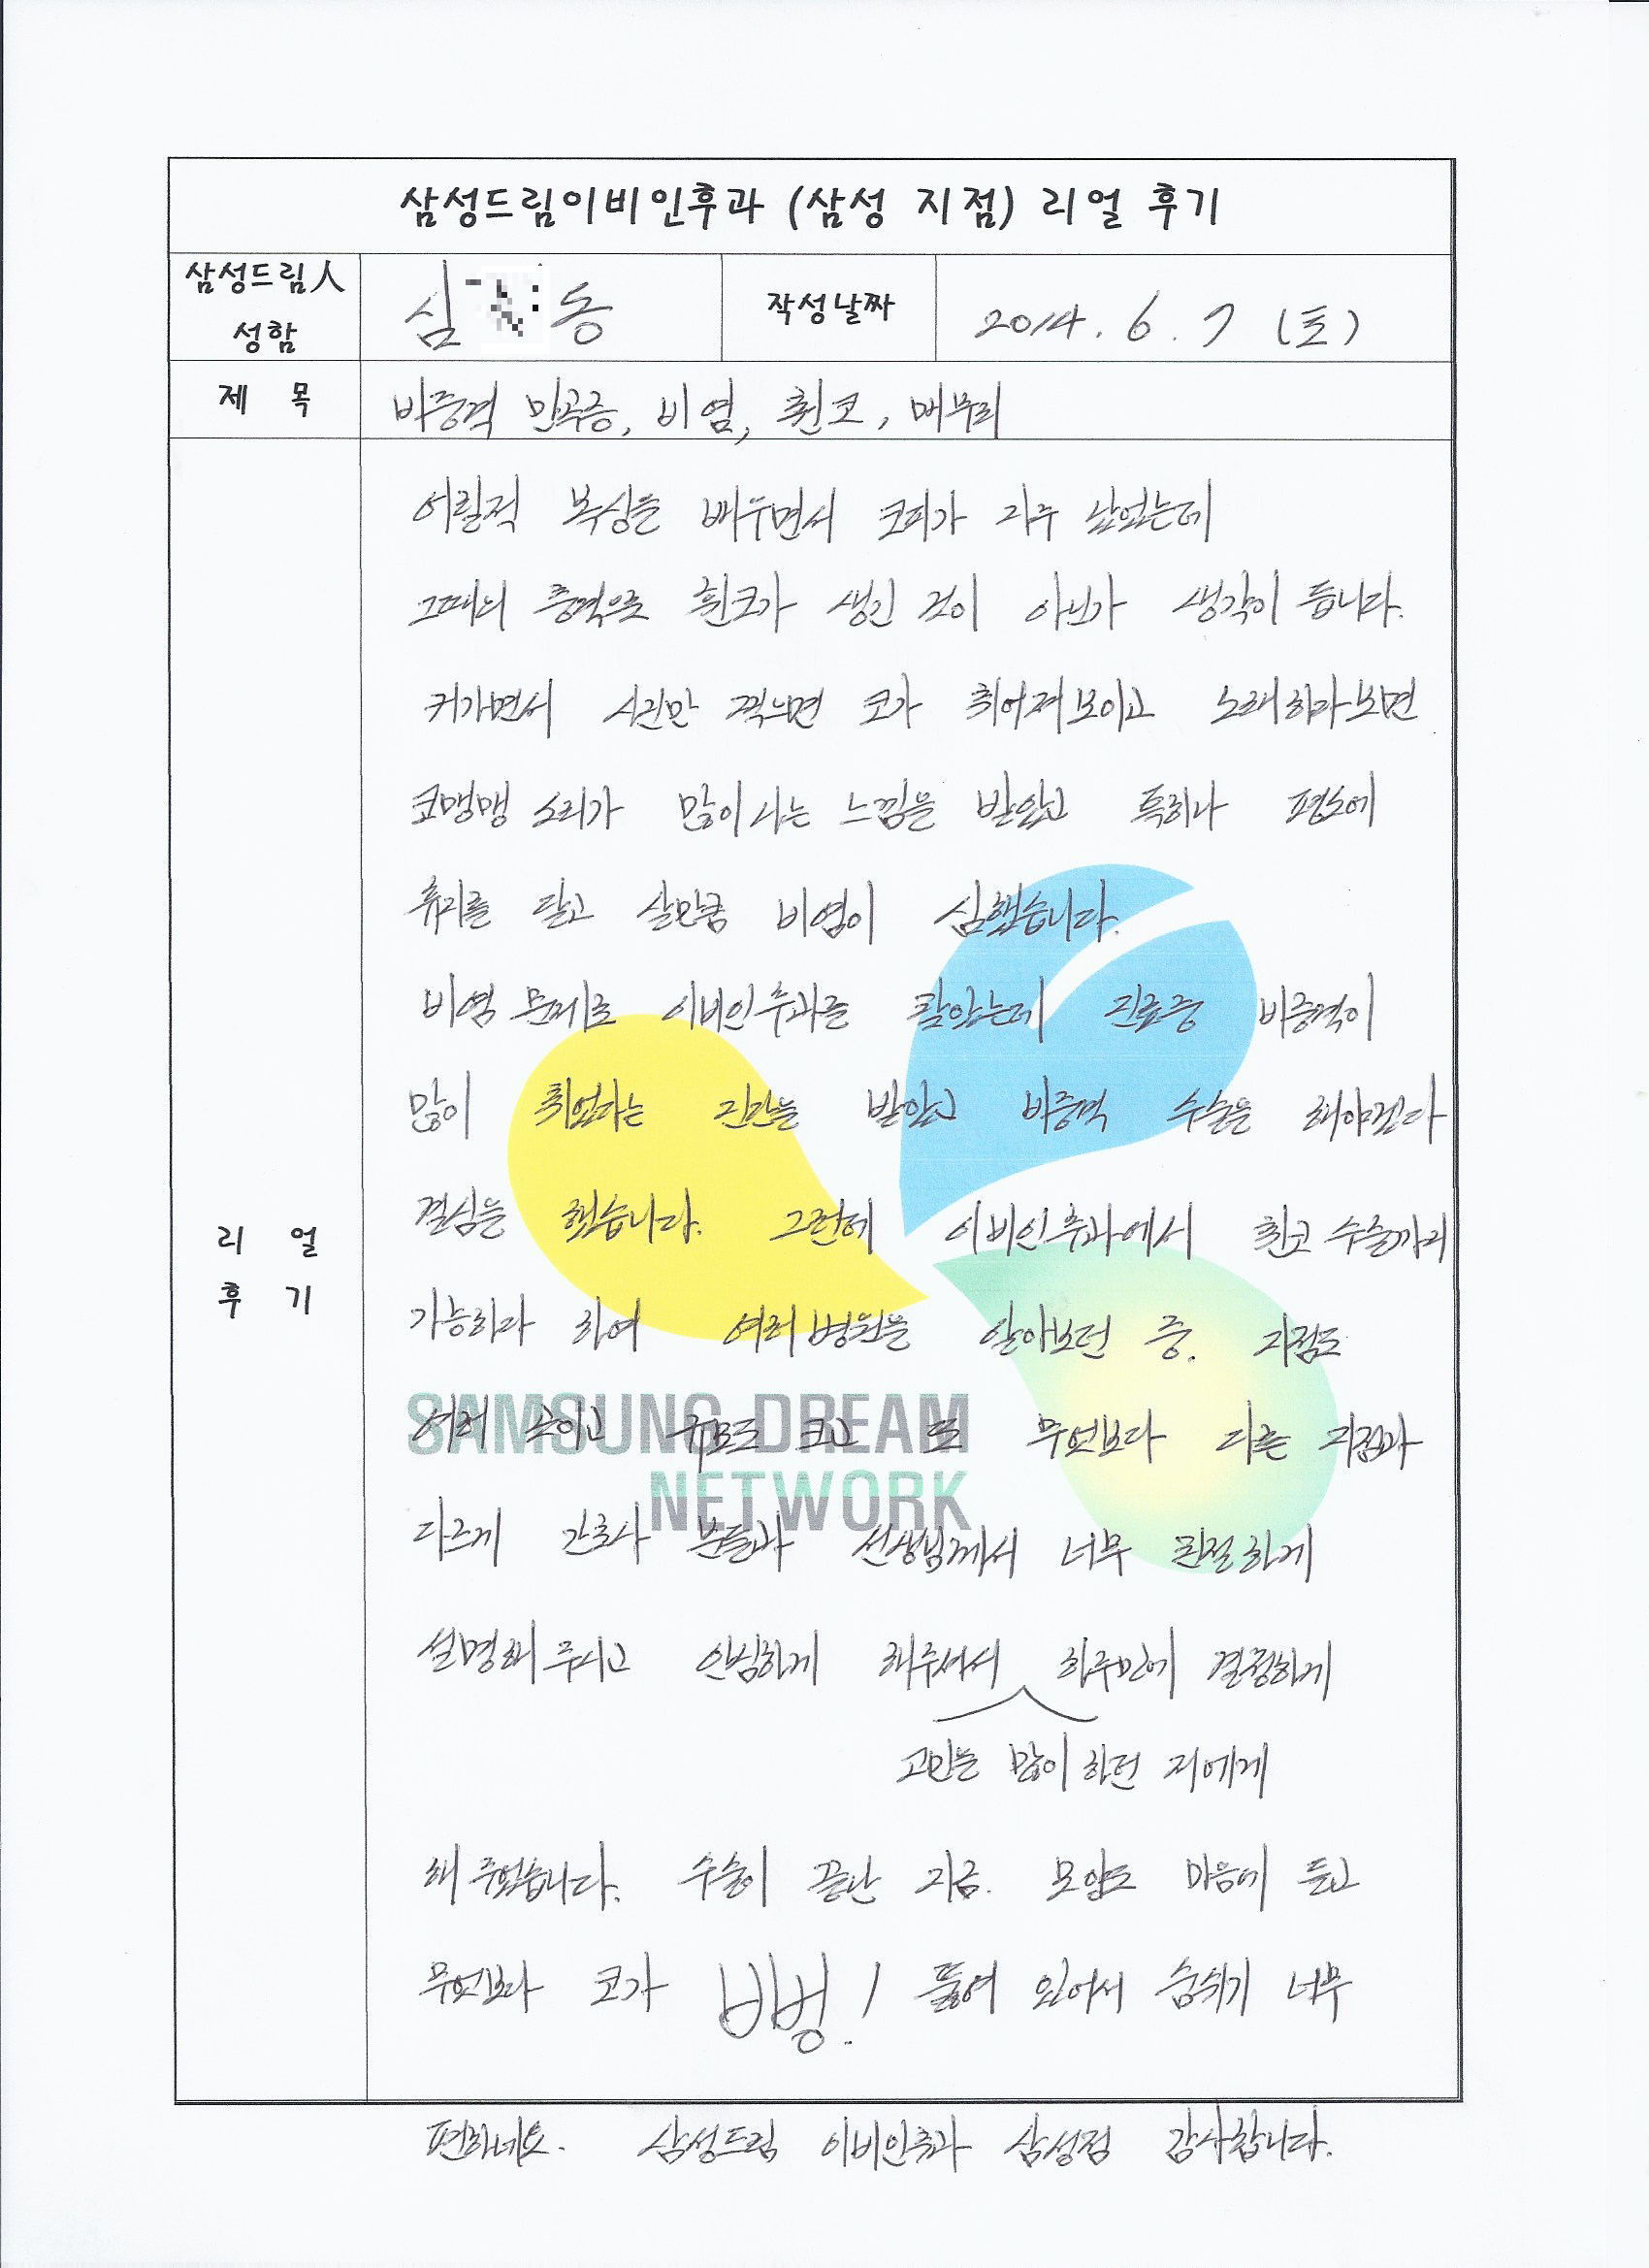 삼성드림이비인후과 (삼성 지점) 리얼 후기
삼성드림人
성함
심 동
작성날짜
2014. 6. 7 (토)
제 목
비중격 만곡증, 비염, 휜코, 매부리
리 얼
후 기
어릴적 복싱을 배우면서 코피가 자주 났었는데
그때의 충격으로 휜코가 생긴 것이 아닌가 생각이 듭니다.
커가면서 사진만 찍으면 코가 휘어져보이고 노래하다보면
코맹맹 소리가 많이 나는 느낌을 받았고 특히나 평소에
휴지를 달고 살만큼 비염이 심했습니다.
비염 문제로 이비인후과를 찾았는데 진료중 비중격이
많이 휘었다는 진단을 받았고 비중격 수술을 해야겠다
결심을 했습니다. 그런데 이비인후과에서 휜코 수술까지
가능하다 하여 여러 병원을 알아보던 중. 지점도
SAMSUNG DREAM
NETWORK
여러 곳이고 규모도 크고 또 무엇보다 다른 지점과
다르게 간호사 분들과 선생님께서 너무 친절하게
설명해 주시고 안심하게 해주셔서 하루만에 결정하게
고민을 많이 하던 저에게
해 주었습니다. 수술이 끝난 지금. 모양도 마음에 들고
무엇보다 코가 뻥! 뚫려 있어서 숨쉬기 너무
편하네요. 삼성드림 이비인후과 삼성점 감사합니다.